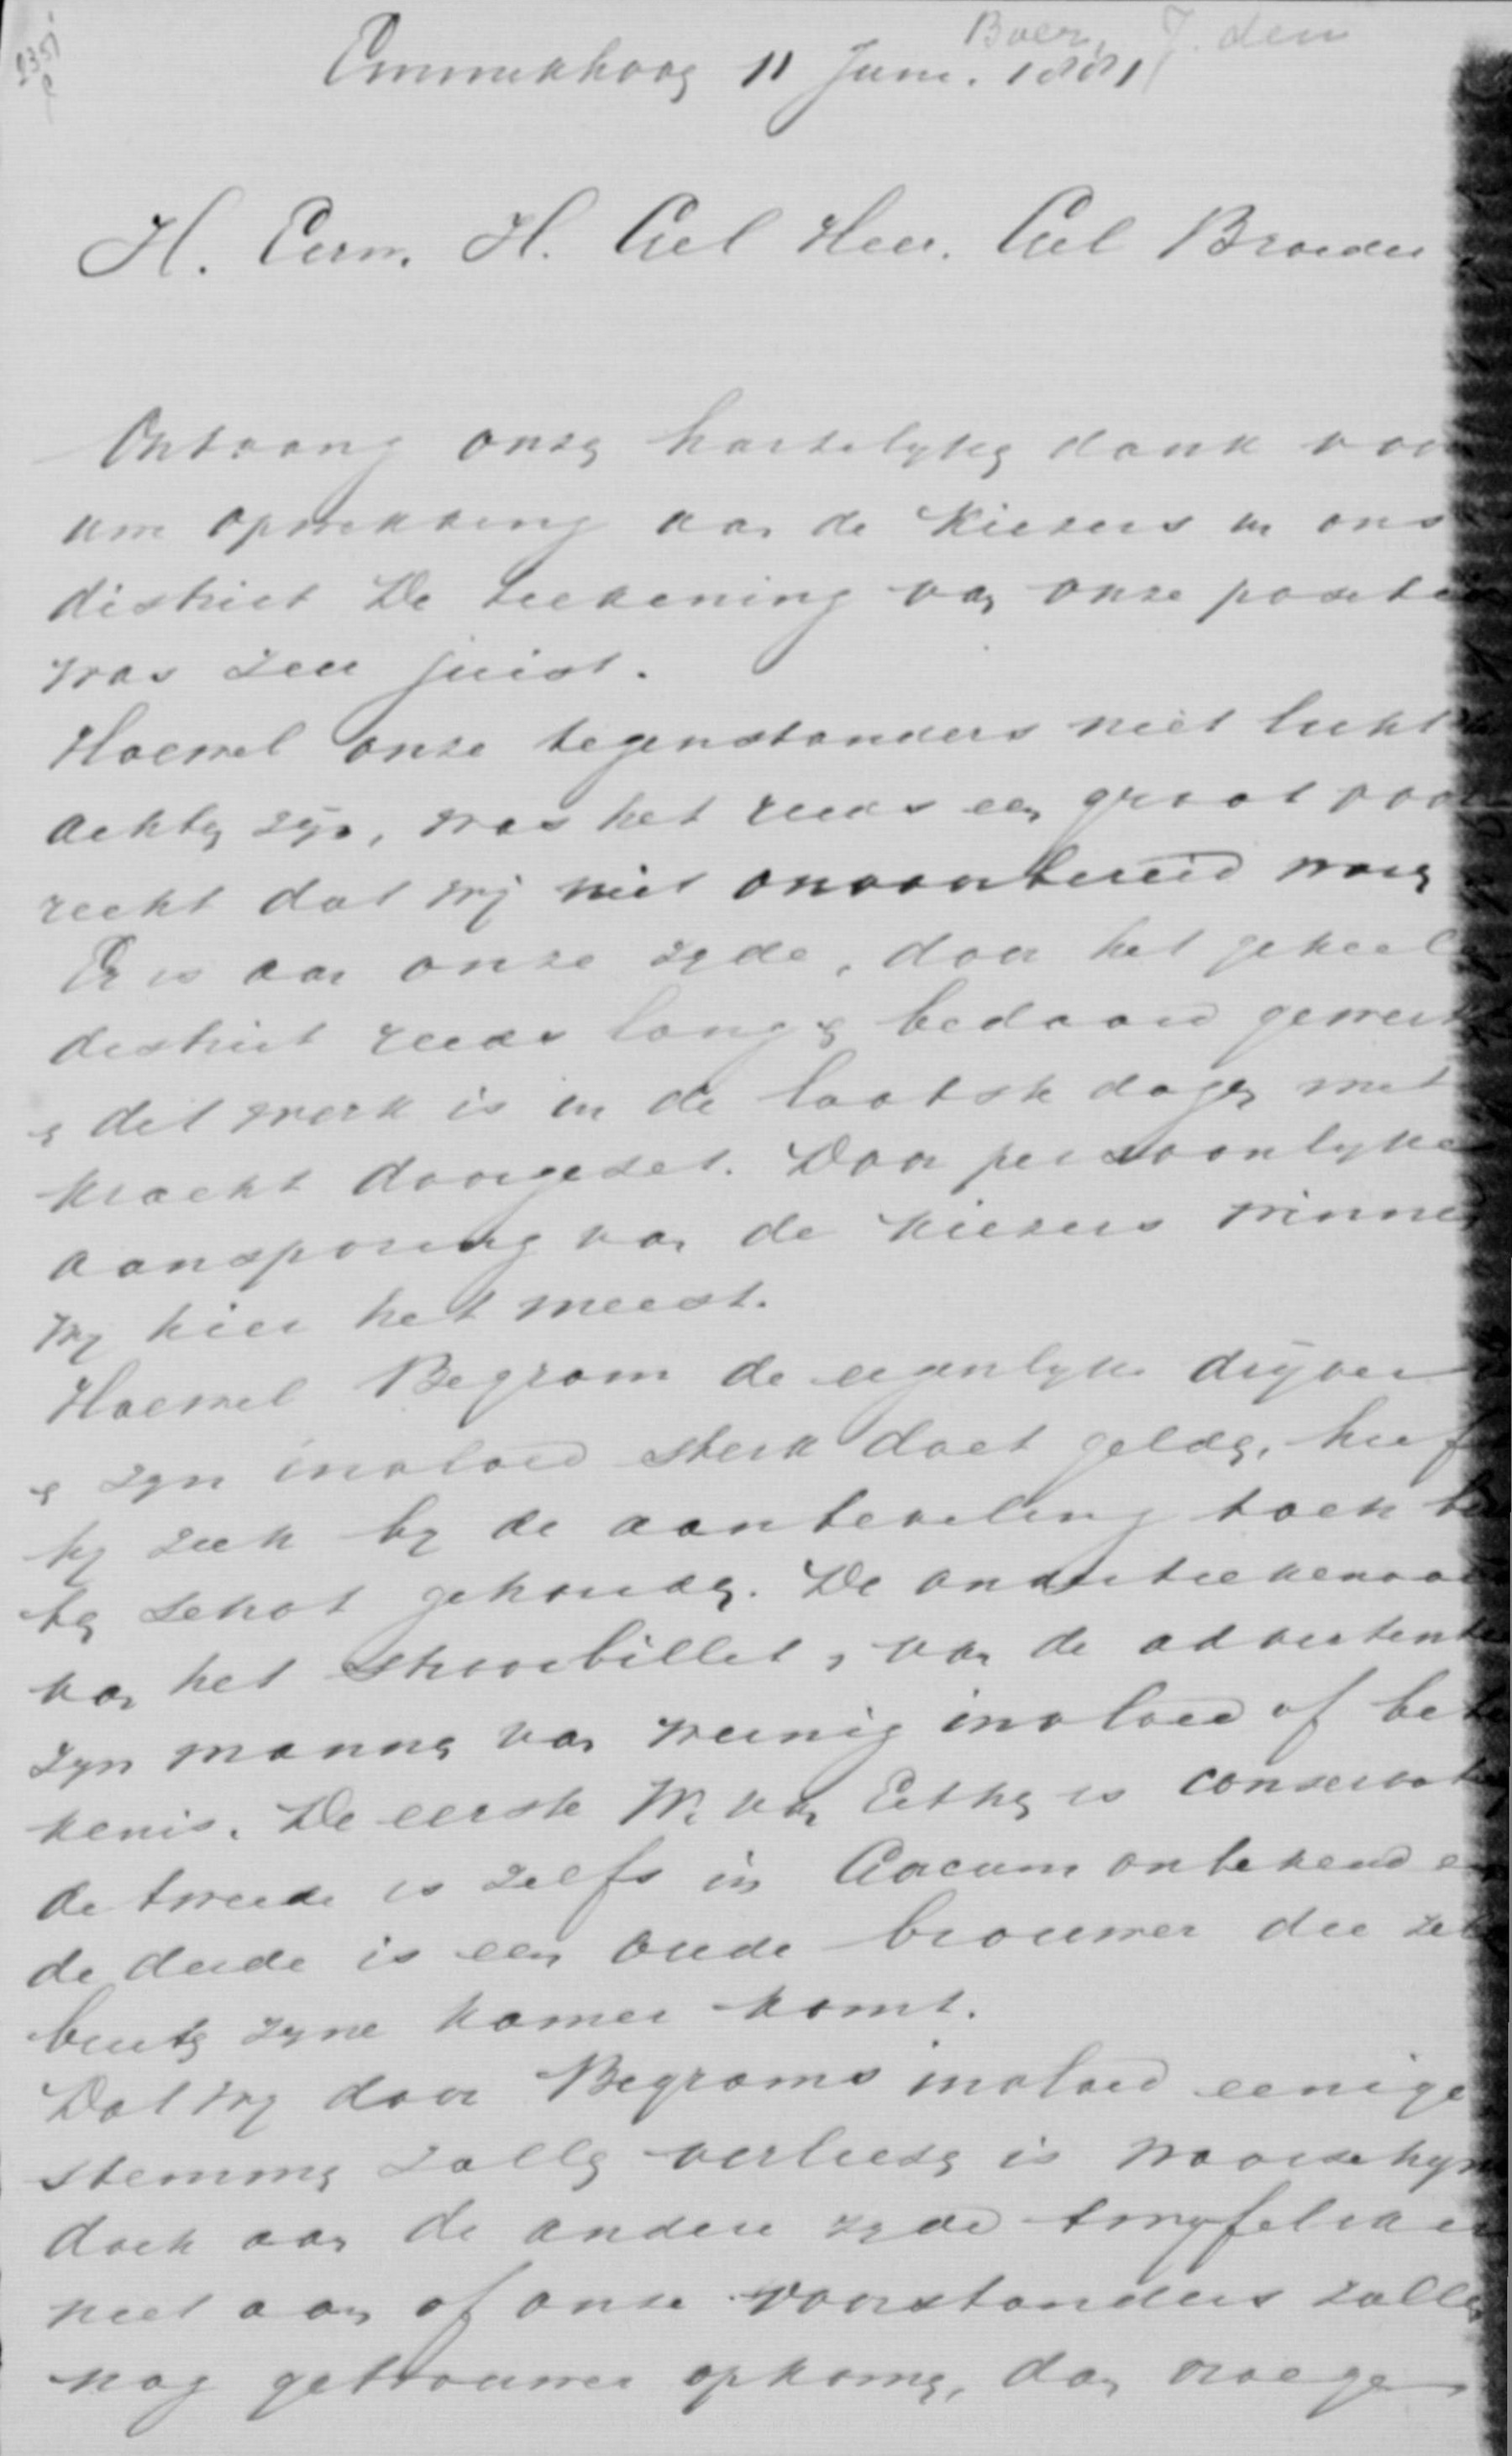 Boer, J. den
Emmikhoog 11 Juni. 1881
H. Eerw. H. Gel Heer. Gel Broeder
Ontvang onze hartelyke dank voor
uw opwekking aan de Kiezers in ons
district De teekening van onze positie
was zeer juist.
Hoewel onze tegenstanders niet licht te
achten zijn, was het reeds een groot voor
recht dat wij niet onvoorbereid waren
Er is aan onze zyde, door het geheele
district reeds lang en bedaard gewerkt
en dit werk is in de laatste dagen met
kracht doorgezet. Door persoonlyke
aansporing van de kiezers winnen
wy hier het meest.
Hoewel Begram de eigenlyke dryver
en zyn invloed sterk doet gelden, heeft
hy zich by de aanbeveling toch bui
ten schot gehouden. De onderteekenaars
van het strooibillet, van de advertentie
zyn mannen van weinig invloed of bete
kenis. De eerste W. van Eethen is conservatief
de tweede is zelfs in Gorcum onbekend en
de derde is een oude brouwer die zel
buiten zyne kamer komt.
Dat wy door Begrams invloed eenige
stemmen zullen verliezen is waarschyn
doch aan de andere zyde twyfel ik er
niet aan of onze voorstanders zullen
nog getrouwer opkomen, dan vroeger